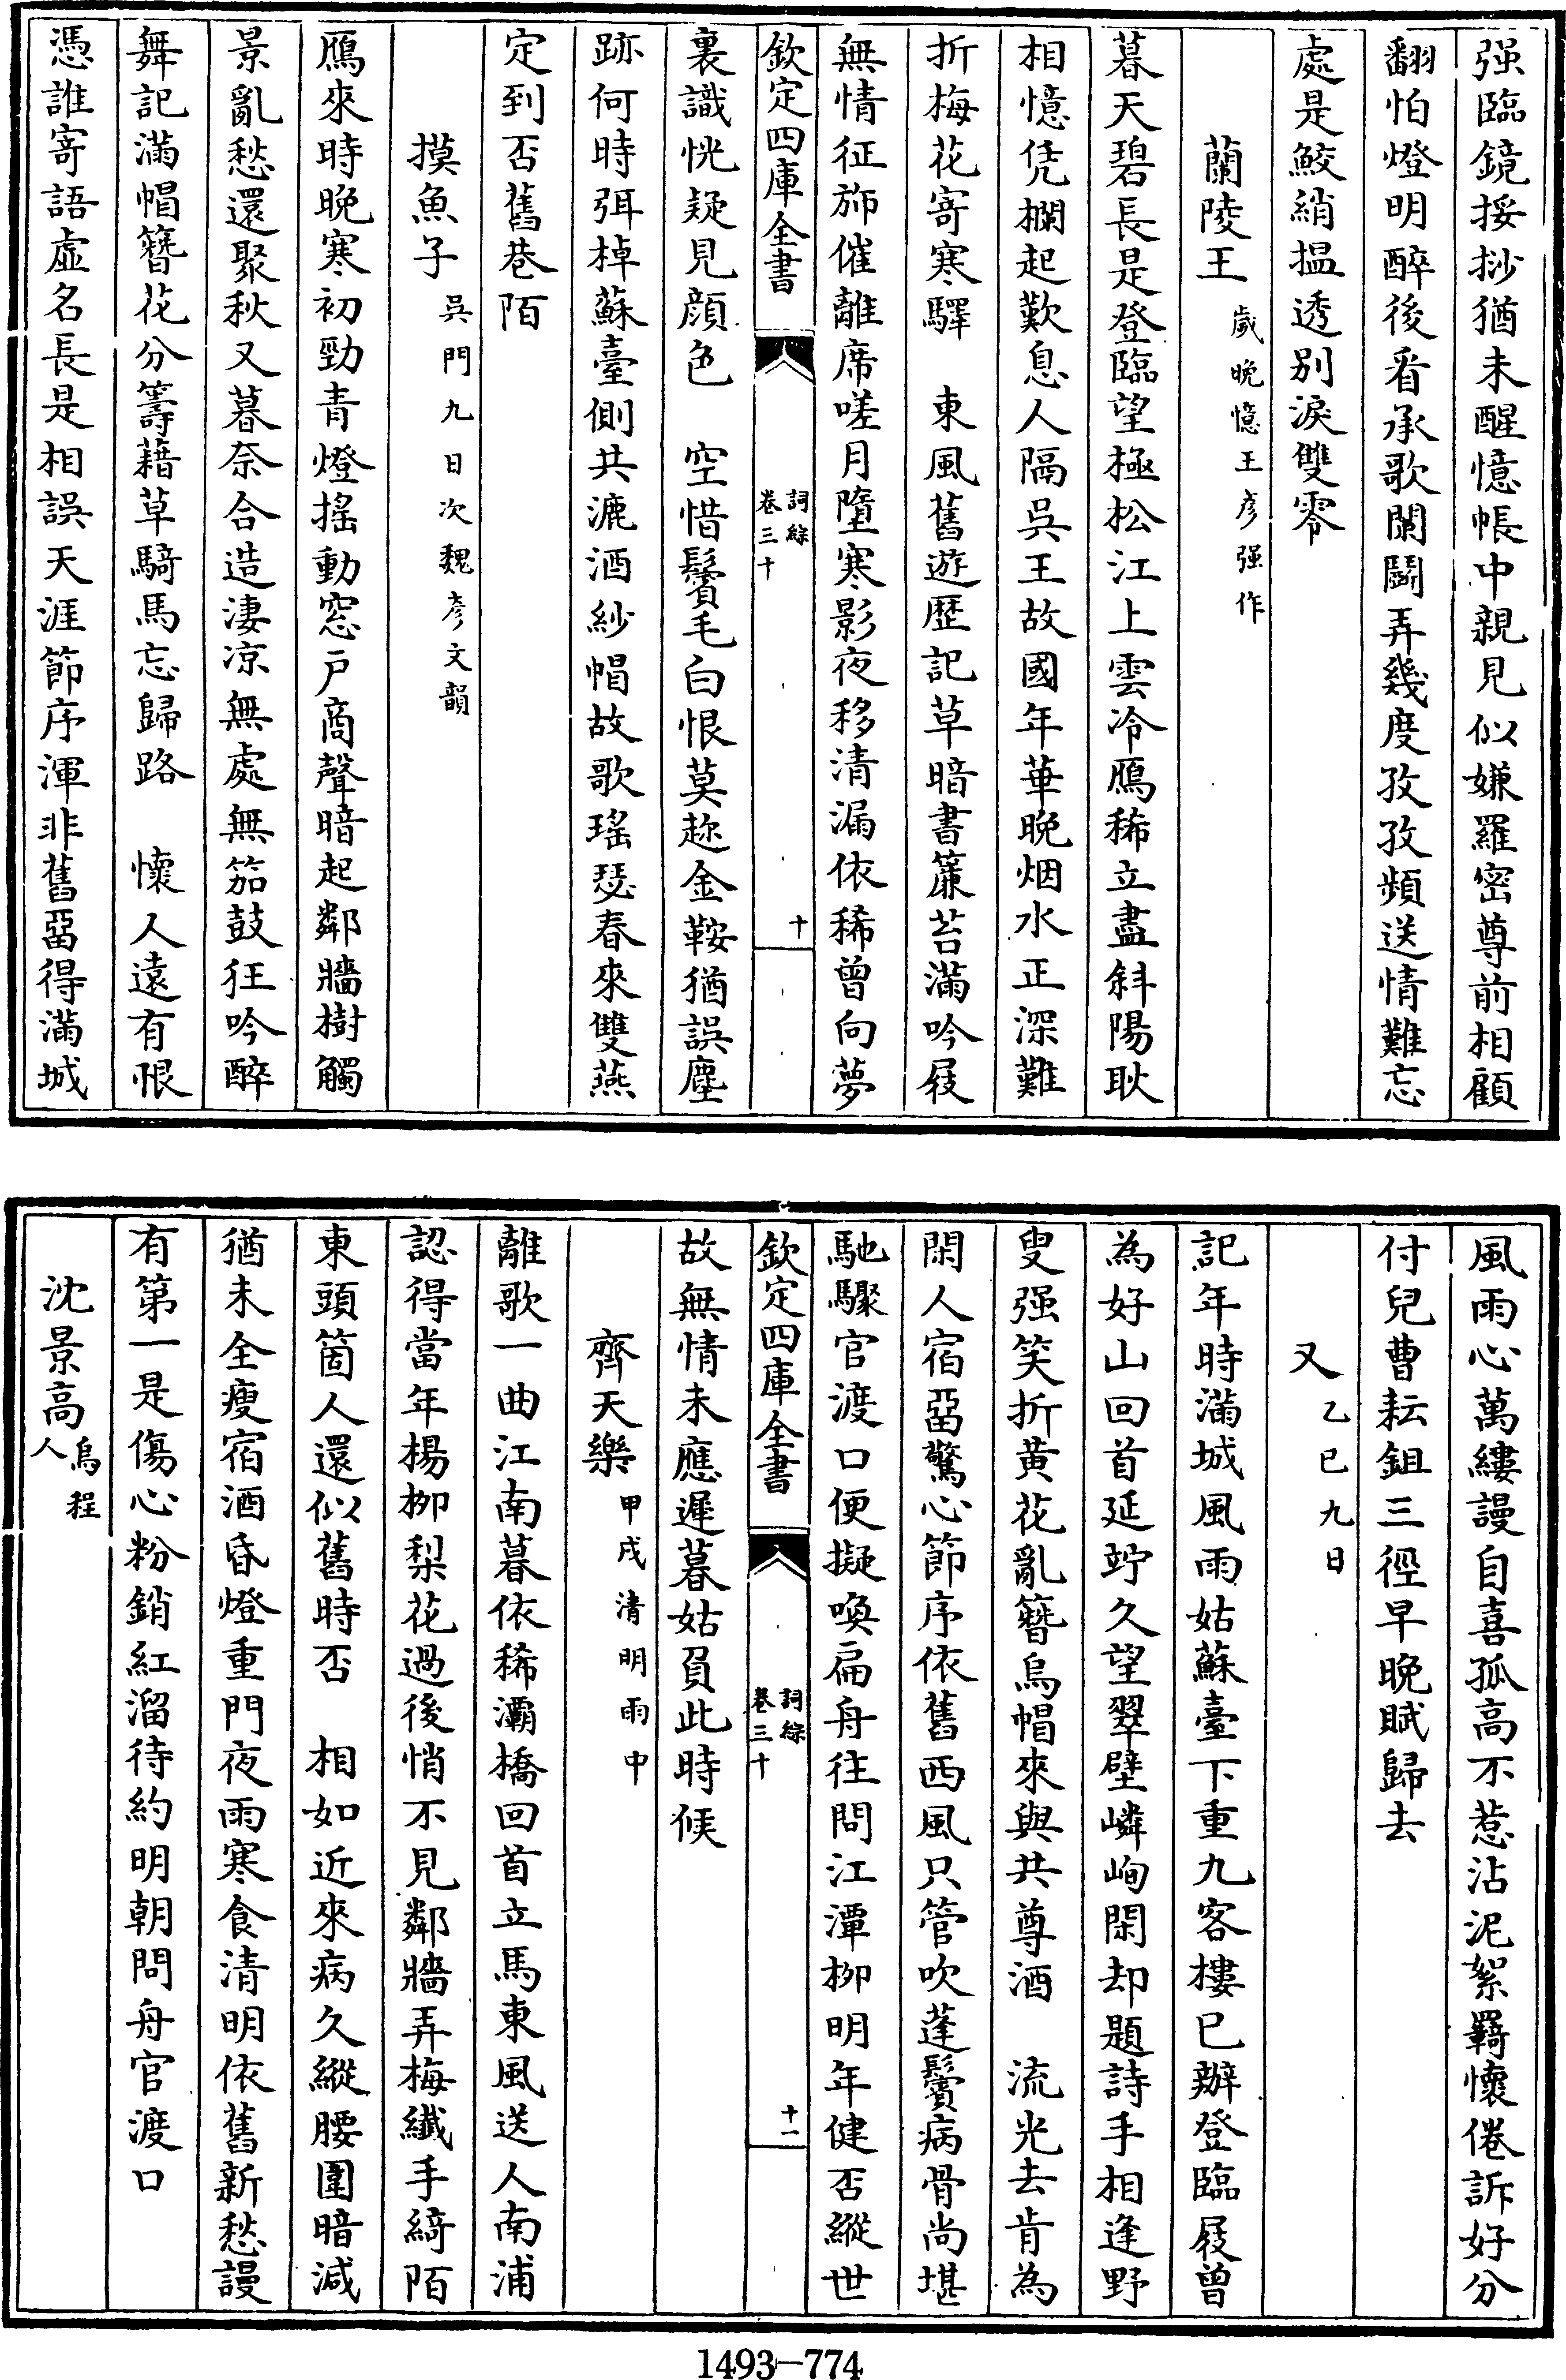 强臨鏡挼挱猶未醒憶帳中親見似嫌羅密尊前相顧
翻怕燈明醉後看承歌闌鬬弄幾度孜孜頻送情難忘
處是鮫綃搵透別淚雙零
蘭陵王 歲晚憶王彥强作
暮天碧長是登臨望極松江上雲冷鴈稀立盡斜陽耿
相憶凭欄起歎息人隔吳王故國年華晚烟水正深難
折梅花寄寒驛　東風舊遊歷記草暗書簾苔滿吟屐
無情征斾催離席嗟月墮寒影夜移清漏依稀曾向夢
欽定四庫全書　詞綜卷三十　十
裏識恍疑見顔色　空惜鬢毛白恨莫趂金鞍猶誤塵
跡何時弭棹蘇臺側共漉酒紗帽故歌瑤瑟春來雙燕
定到否舊巷陌
摸魚子 吳門九日次魏彥文韻
鴈來時晚寒初勁青燈搖動窓戶商聲暗起鄰牆樹觸
景亂愁還聚秋又暮奈合造淒凉無處無笳鼓狂吟醉
舞記滿帽簪花分籌藉草騎馬忘歸路　懷人遠有恨
憑誰寄語虛名長是相誤天涯節序渾非舊留得滿城
風雨心萬縷謾自喜孤高不惹沾泥絮羇懷倦訴好分
付兒曹耘鉏三徑早晚賦歸去
又 乙巳九日
記年時滿城風雨姑蘇臺下重九客樓已辦登臨屐曾
為好山回首延竚久望翠壁嶙峋閑却題詩手相逢野
叟强笑折黃花亂簪烏帽來與共尊酒　流光去肯為
閑人宿留驚心節序依舊西風只管吹蓬鬢病骨尚堪
馳驟官渡口便擬喚扁舟往問江潭柳明年健否縱世
欽定四庫全書　詞綜卷三十　十一
故無情未應遲暮姑負此時候
齊天樂 甲戌清明雨中
離歌一曲江南暮依稀灞橋回首立馬東風送人南浦
認得當年楊柳梨花過後悄不見鄰牆弄梅纖手綺陌
東頭箇人還似舊時否　相如近來病久縱腰圍暗減
猶未全瘦宿酒昏燈重門夜雨寒食清明依舊新愁謾
有第一是傷心粉銷紅溜待約明朝問舟官渡口
沈景高 烏程人
1493-774